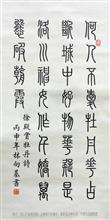 何人不愛牡丹花占
斷城中好物華疑是
洛川神女作千嬌萬
態破朝霞
徐凝賞牡丹詩
丙申年林向書